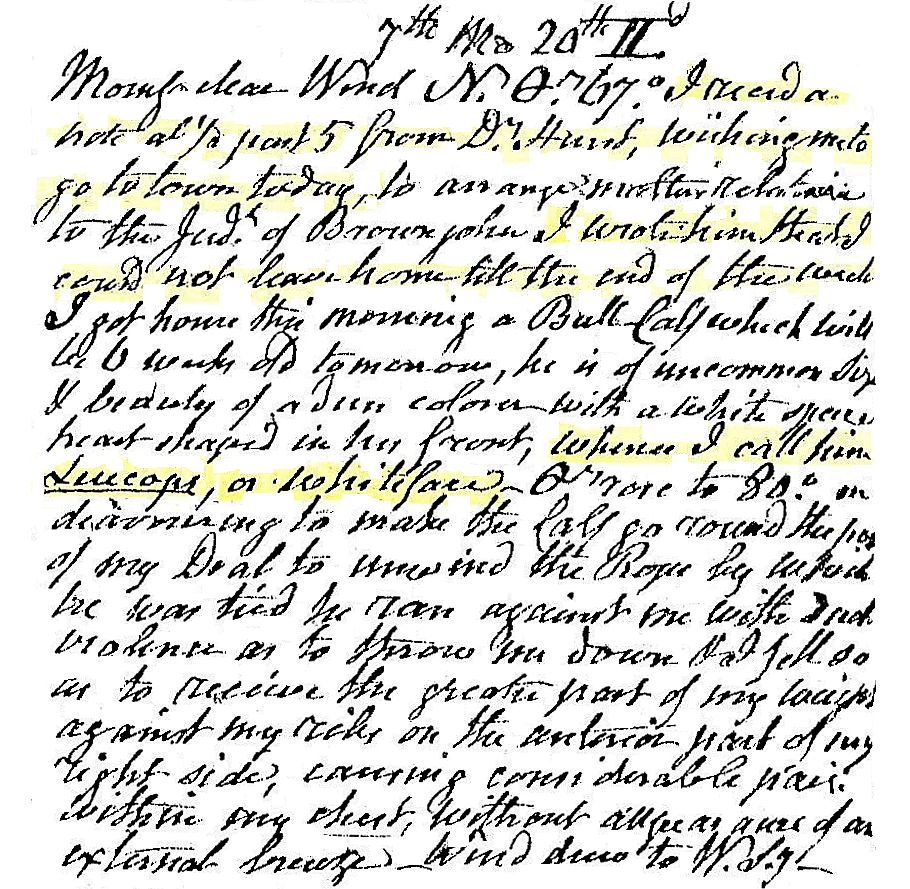 7th Mo 20th II d
Morng clear Wind N. Or 67.° I reced a
note at 1/2 past 5 from Dr. Hunt, wishing me to
go to town today, to arrange matters relative
to the Jud.t of Brownjohn I wrote him that I
could not leave home till the end of the week
I got home this morning a Bull Calf which will
be 6 weeks old tomorrow, he is of uncommon size
& beauty of a dun colour with a white
heart shaped in his front, whence I call him
Leucops, or Whiteface - Or rose to 80.° in
to make the Calf go round the post
of my Deal to unwind the Rope by which
he was tied he ran against me with such
violence as to throw me down & I fell so
as to receive the greater part of my weight
against my ribs on the anterior part of my
right side, causing considerable pain
within my chest, without appearance of an
external bruize - Wind due to W.S.y -